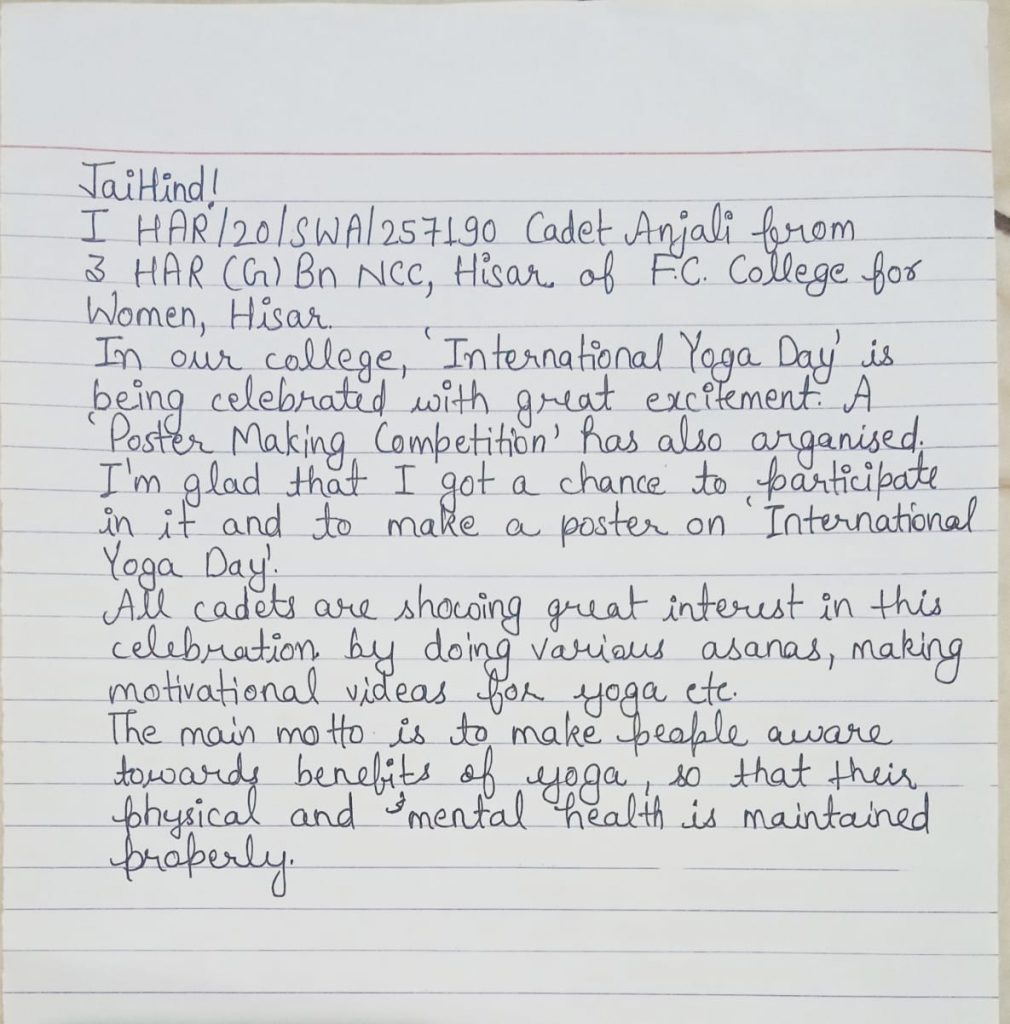 JaiHind!
I HAR/20/SWA/257190 Cadet Anjali from
3 HAR (G) Bn NCC, Hisar of F.C. College for
Women, Hisar.
In our college, 'International Yoga Day' is
being celebrated with great excitement. A
'Poster Making Competition' has also arganised.
I'm glad that I got a chance to participate
in it and to make a poster on 'International
Yoga Day'.
All cadets are showing great interest in this
celebration by doing various asanas, making
motivational videas for yoga etc.
The main motto is to make people aware
towards benefits of yoga, so that their
physical and mental health is maintained
properly.